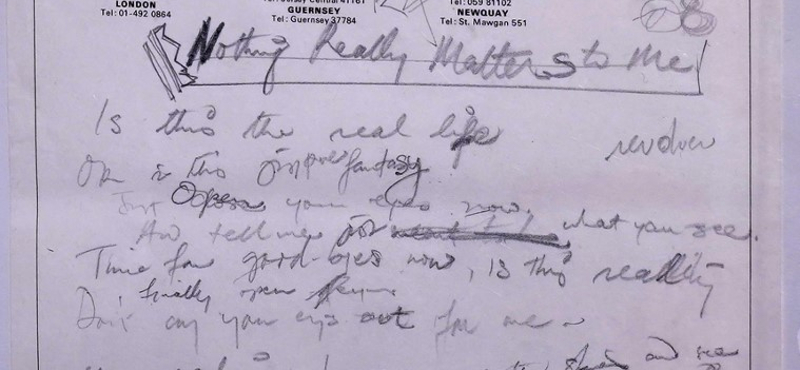 LONDON
Tel: 01-492 0864
GUERNSEY
Tel: Guernsey 37784
Tel: 059 81102
NEWQUAY
Tel: St. Mawgan 551
Nothing Really Matters to Me
Is this the real life
revolver
Or is this just pure fantasy
Just Open your eyes now.
And tell me what you see.
Time for good-byes now, is this reality
finally open
Don't cry your eyes out for me
and see